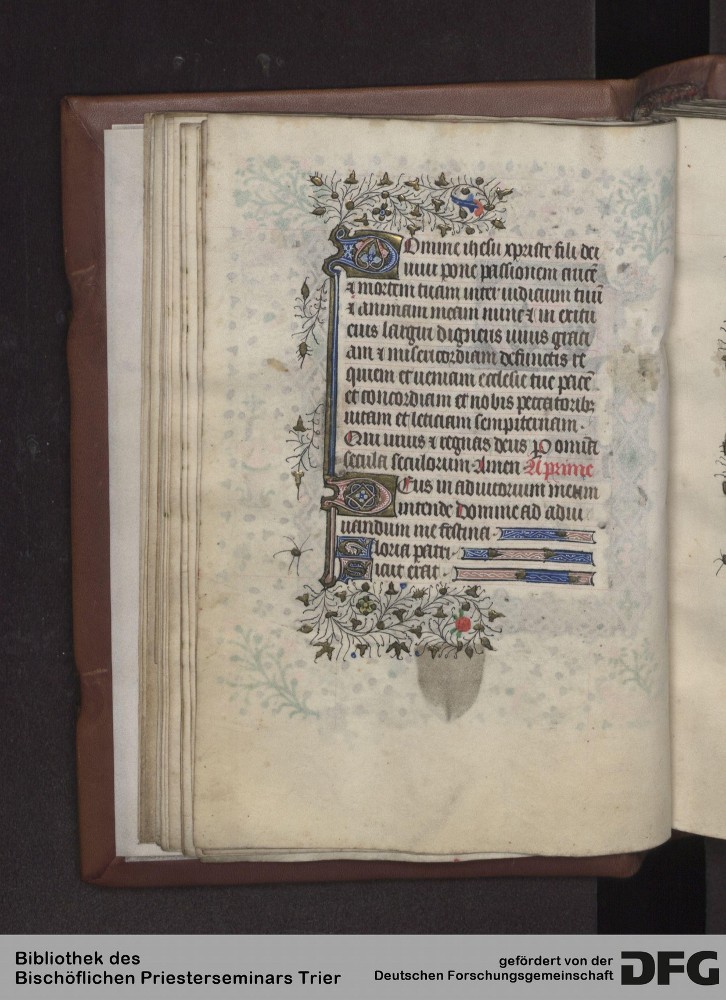 Domine ihesu xpriste fili dei
viui pone passionem cruce̅
⁊ mortem tuam inter iudicium tuu̅
⁊ animam meam nunc ⁊ in exitu
eius largiri digneris viuis graci
am ⁊ misericordiam defunctis re
quiem et ueniam ecclesie tue pace̅
et concordiam et nobis peccatoribꝫ
uitam et leticiam sempiternam.
Qui viuis ⁊ regnas deus ꝑ omnia
secula seculorum. Amen. A prime
Deus in adiutorium meum
intende Domine ad adiu
uandum me festina.
Gloria patri.
Sicut erat.
Bibliothek des
Bischöflichen Priesterseminars Trier
gefördert von der
Deutschen Forschungsgemeinschaft
DFG